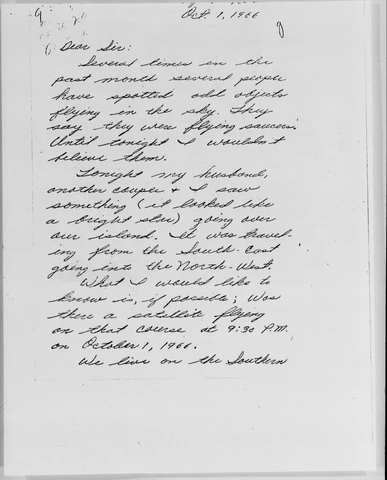 Oct. 1, 1966
Dear Sir:
Several times in the
past month several people
have spotted odd objects
flying in the sky. They
say they were flying saucers.
Until tonight I wouldn't
believe them.
Tonight my husband,
another couple + I saw
something (it looked like
a bright star) going over
our island. It was travel-
ing from the South-East
going into the North-West.
What I would like to
know is, if possible; Was
there a satellite flying
on that course at 9:30 P.M.
on October 1, 1966.
We live on the Southern